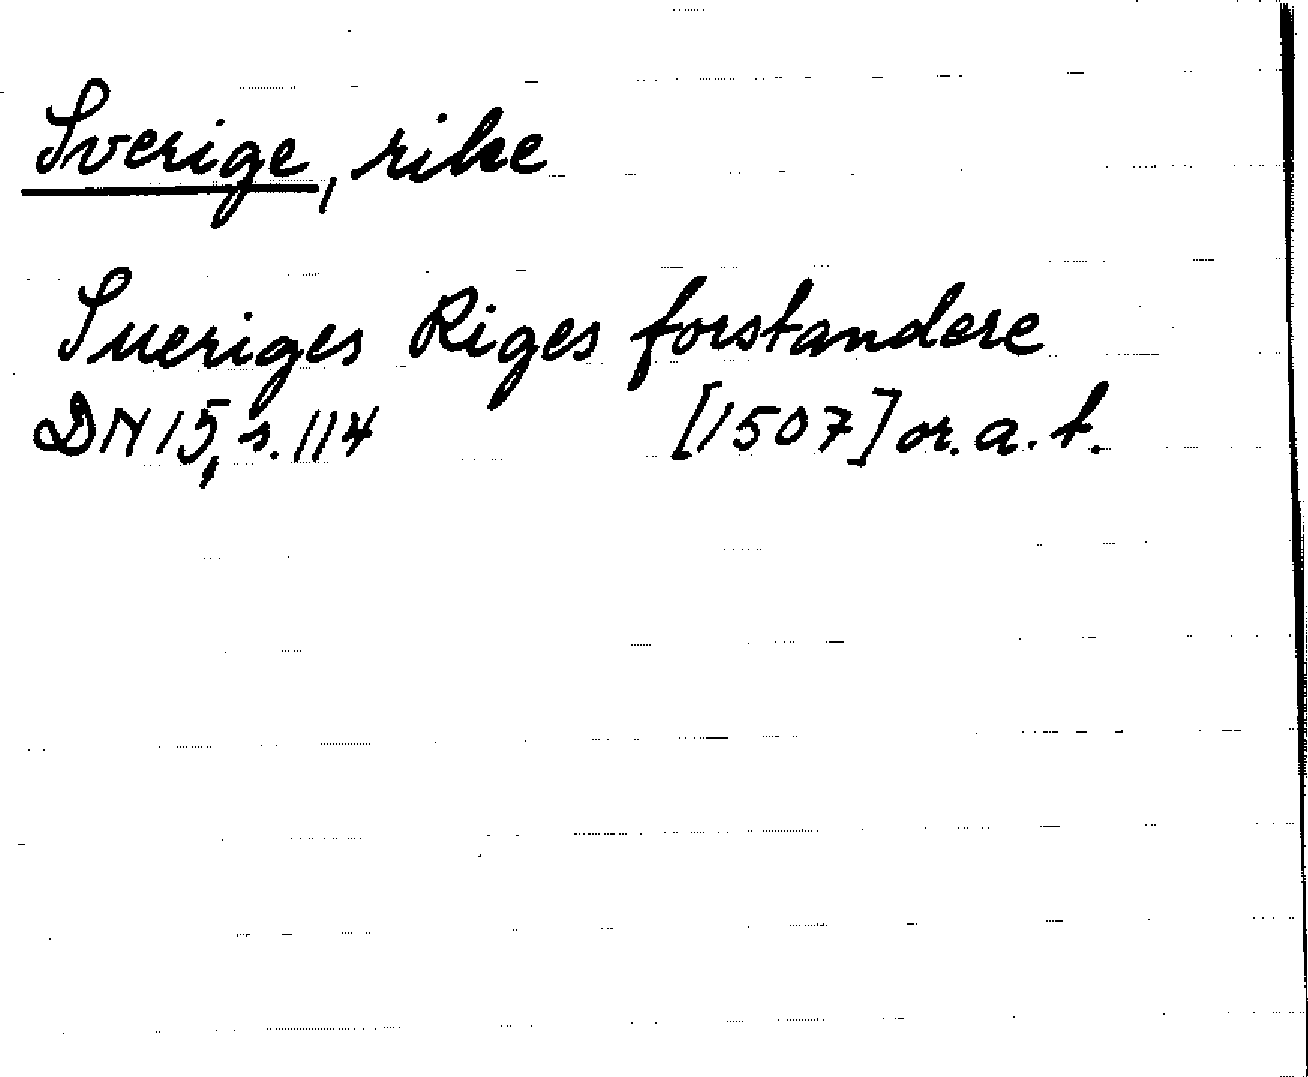 Sverige, rike
Sueriges Riges forstandere
DN 15, s. 114 [1507] or. a. t.